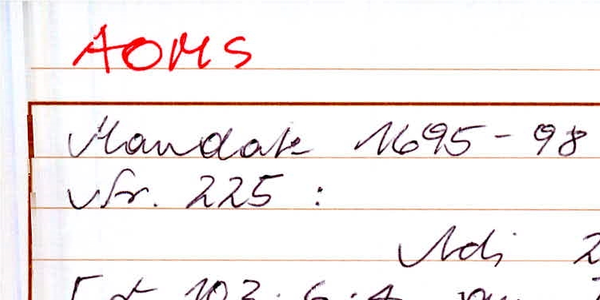 AOMS
Mandate 1695-98
Nr. 225 :
Adi 2